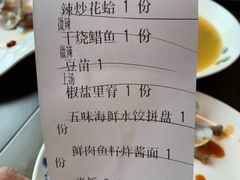 辣炒花蛤 1 份
微辣
干烧鲳鱼 1 份
微辣
豆苗 1
上汤
椒盐里脊 1 份
五味海鲜水饺拼盘 1
份
鲜肉鱼籽炸酱面 1
份